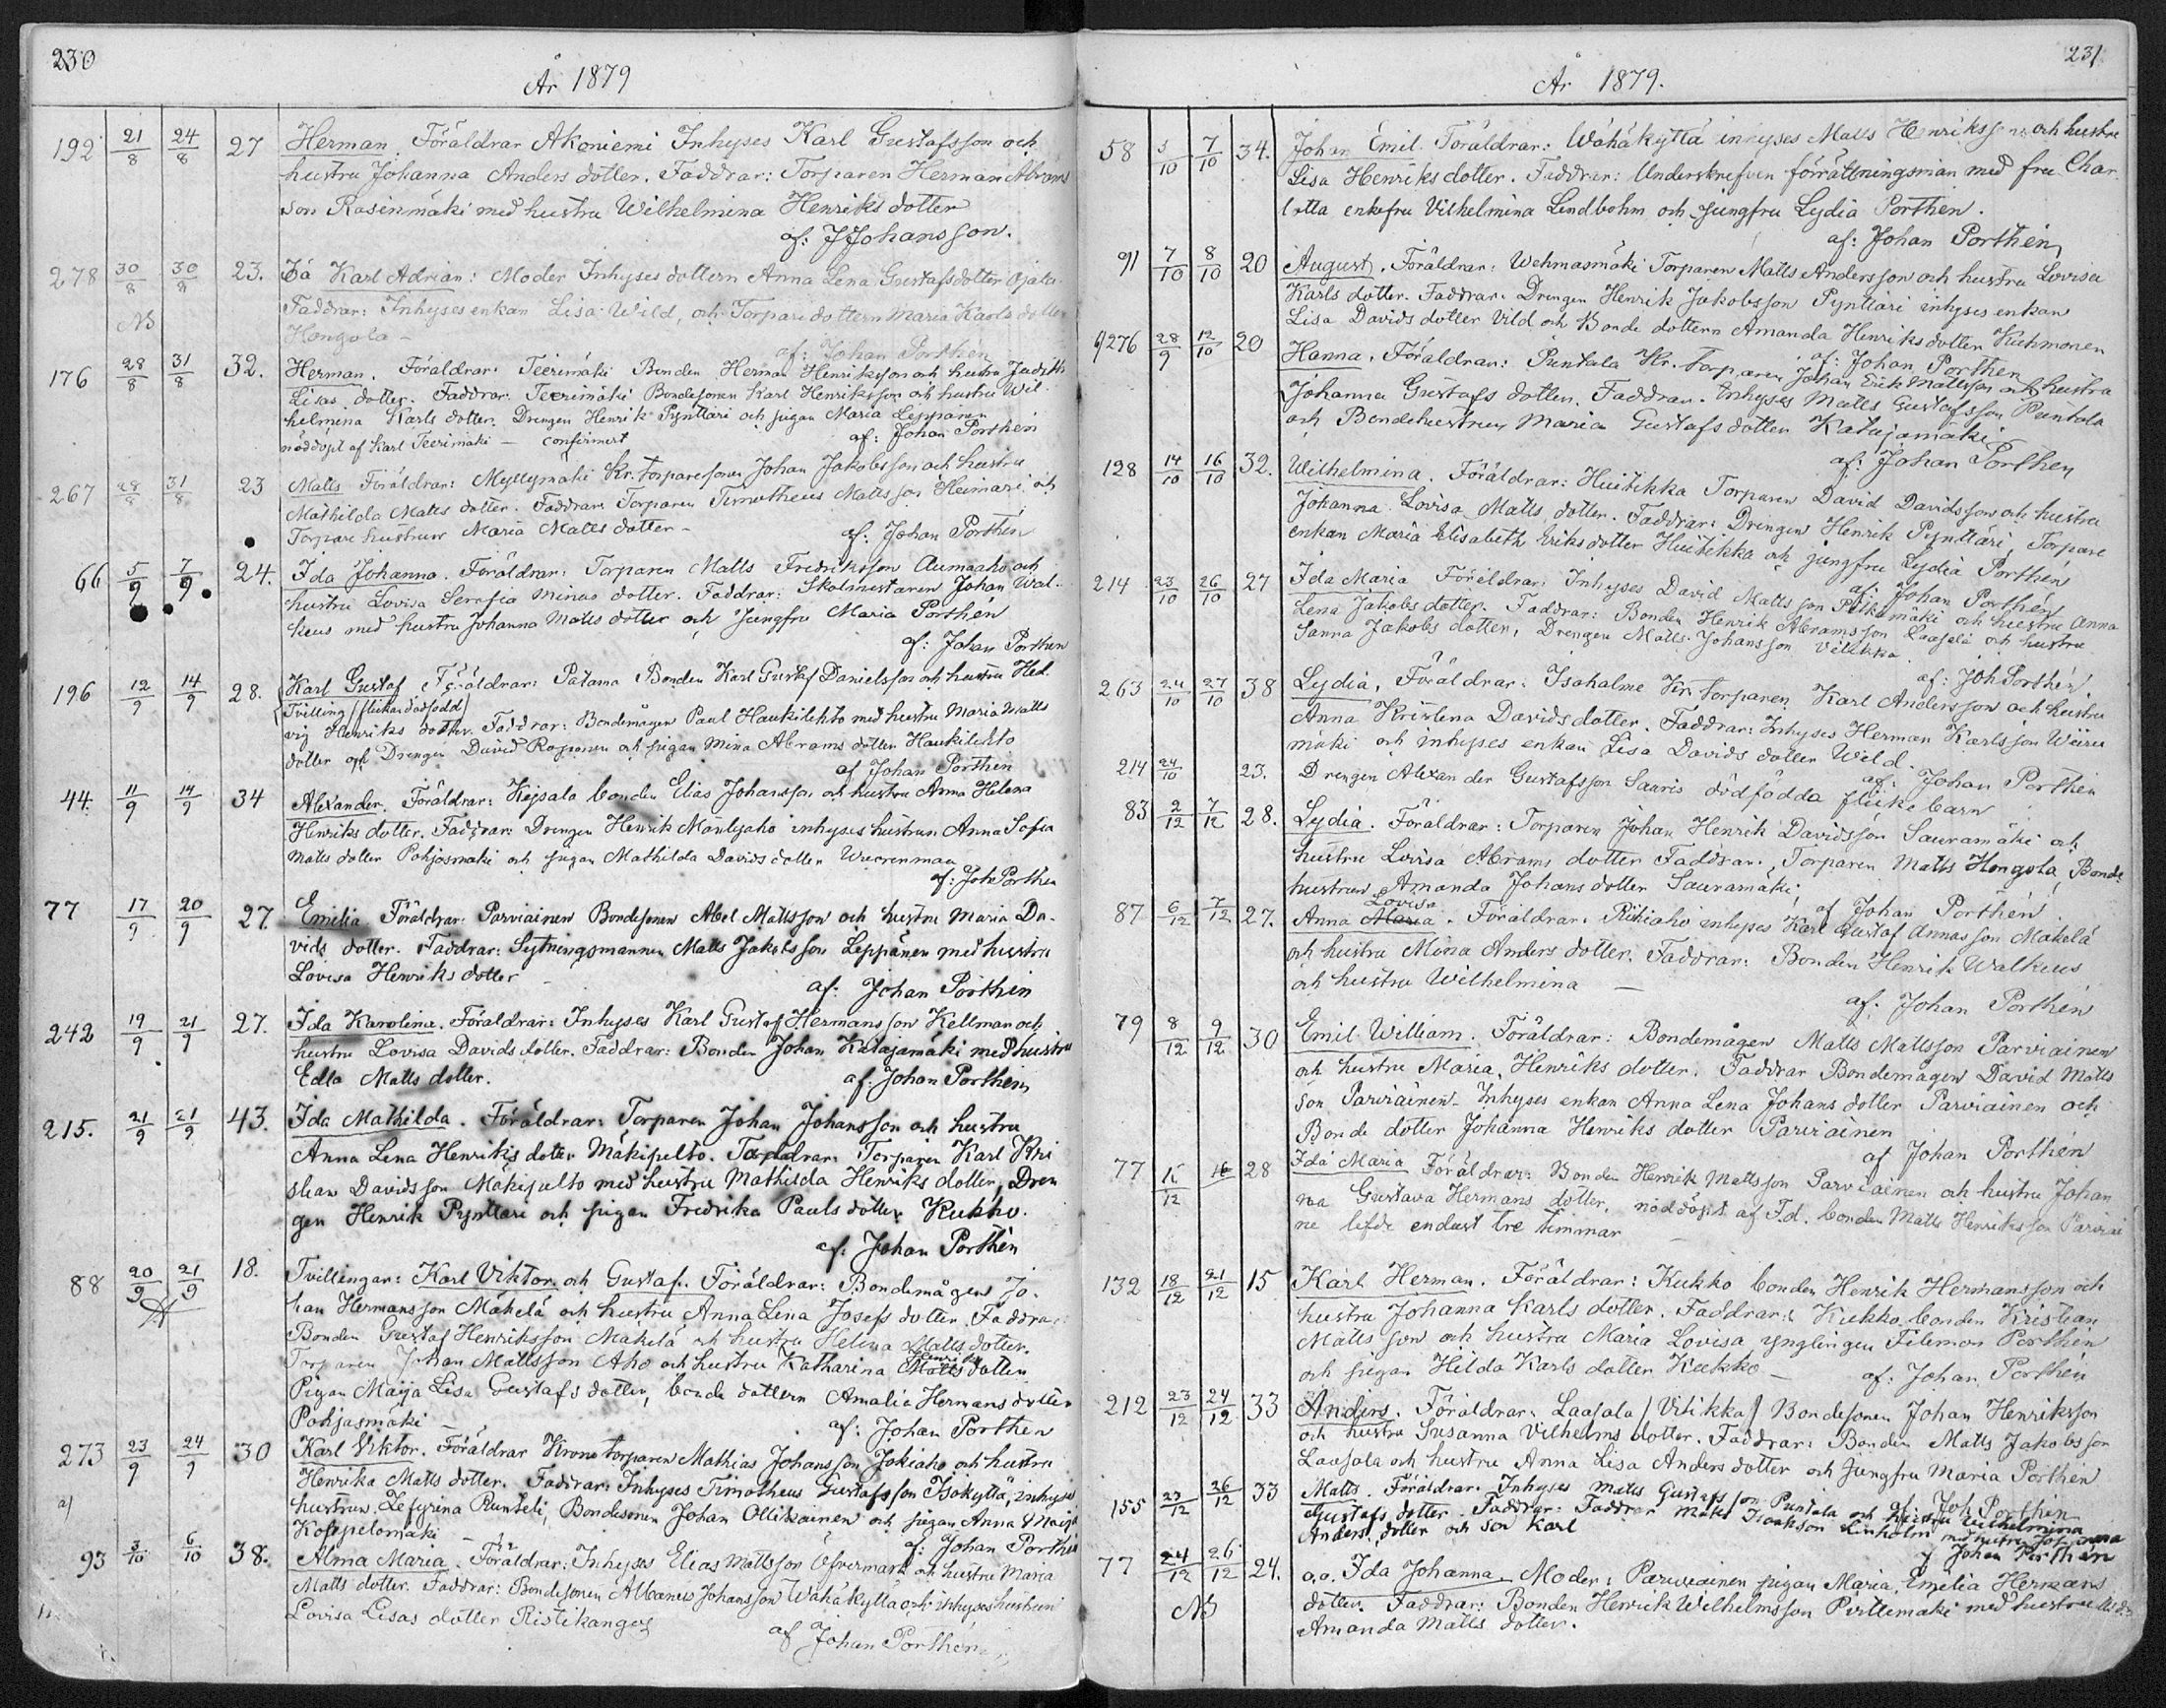 230
År 1879
192 21/8 24/8 27 Herman. Föräldrar Akoniemi Inhyses Karl Gustafsson och
hustru Johanna Anders dotter. Faddrar: Torparen Herman Abrams
son Rasinmäki med hustru Wilhelmina Henriks dotter
af: J Johansson.
278 30/8 30/8 23. Oä Karl Adrian: Moder Inhyses dottern Anna Lena Gustafsdotter Ojala
Faddrar: Inhyses enkan Lisa Wild, och Torpare dottern Maria Karls dotter
NB
Hongola –
af: Johan Porthén
176 28/8 31/8 32. Herman. Föräldrar: Teerimäki Bonden Herman Henriksson och hustru Judith
Lisas dotter. Faddrar: Teerimäki Bondesonen Karl Henriksson och hustru Wil-
helmina Karls dotter. Drengen Henrik Pynttäri och pigan Maria Leppänen
nöddöpt af Karl Teerimäki – confirmert af: Johan Porthén
267 28/8 31/8 23 Matts Föräldrar: Myllymäki Kr. torparesonen Johan Jakobsson och hustru
Mathilda Matts dotter. Faddrar: Torparen Timotheus Mattsson Heimari och
Torpare hustrun Maria Matts dotter – af: Johan Porthén
66 5/9 7/9 24. Ida Johanna. Föräldrar: Torparen Matts Fredriksson Aumaaho och
hustru Lovisa Serafia Minas dotter. Faddrar: Skolmestaren Johan Wal-
keus med hustru Johanna Matts dotter och Jungfru Maria Porthén
af: Johan Porthén
196 12/9 14/9 28. Karl Gustaf Föräldrar: Patama Bonden Karl Gustaf Danielsson och hustru Hed
(Tvilling / flickan dödfödd)
vig Henriks dotter. Faddrar: Bondemågen Paul Haukilehto med hustru Maria Matts
dotter och Drengen David Raponen och pigan Mina Abrams dotter Haukilehto
af Johan Porthén
44. 11/9 14/9 34 Alexander. Föräldrar: Kejsala bonden Elias Johansson och hustru Anna Helena
Henriks dotter. Faddrar: Drengen Henrik Mäntyaho inhyses hustrun Anna Sofia
Matts dotter Pohjosmäki och pigan Mathilda Davids dotter Wuorenmaa
af: Joh Porthén
77 17/9 20/9 27. Emilia Föräldrar: Parviainen Bondesonen Abel Mattsson och hustru Maria Da-
vids dotter. Faddrar: Sytningsmannen Matts Jakobsson Leppänen med hustru
Lovisa Henriks dotter –
af: Johan Porthén
242 19/9 21/9 27. Ida Karolina. Föräldrar: Inhyses Karl Gustaf Hermansson Kellman och
hustru Lovisa Davids dotter. Faddrar: Bonden Johan Katajamäki med hustru
Edla Matts dotter. af: Johan Porthén
215. 21/9 21/9 43. Ida Mathilda. Föräldrar: Torparen Johan Johansson och hustru
Anna Lena Henriks doter Mäkipelto. Faddrar: Torparen Karl Kri
stian Davidsson Mäkipelto med hustru Mathilda Henriks dotter, Dren
gen Henrik Pynttäri och pigan Fredrika Pauls dotter Kukko.
af: Johan Porthén
88 20/9 21/9 18. Tvillingar: Karl Viktor och Gustaf. Föräldrar: Bondemågen Jo-
han Hermansson Mäkelä och hustru Anna Lena Josefs dotter. Faddrar:
Bonden Gustaf Henriksson Mäkelä och hustru Helena Matts dotter.
Henriks
Torparen Johan Mattsson Aho och hustru Katharina Matts dotter.
Pigan Maija Lisa Gustafs dotter, bonde dottern Amalia Hermans dotter
Pohjasmäki – af: Johan Porthén
273 23/9 24/9 30 Karl Viktor. Föräldrar Kronotorparen Mathias Johansson Jokiaho och hustru
Henrika Matts dotter. Faddrar: Inhyses Timotheus Gustafsson Isokyttä, inhyses
hustrun Zefyrina Runteli, Bondesonen Johan Ollikainen och pigan Anna
Koppelomäki – af: Johan Porthén
93 3/10 6/10 38. Alma Maria. Föräldrar: Inhyses Elias Mattsson Öfvermark och hustru Maria
Matts dotter. Faddrar: Bondesonen Albanus Johansson Wähäkyttä och inhyses hustrun
Lovisa Lisas dotter Ristikangas
af Johan Porthén
231
År 1879.
58 5/10 7/10 34. Johan Emil. Föräldrar: Wähäkyttä inhyses Matts Henriksson och hustru
Lisa Henriks dotter. Faddrar: Underskrefven förrättningsman med fru Char-
lotta enkefru Vilhelmina Lindbohm och Jungfru Lydia Porthén.
af: Johan Porthén
91 7/10 8/10 20 August. Föräldrar: Wehmasmäki Torparen Matts Andersson och hustru Lovisa
Karls dotter. Faddrar: Drengen Henrik Jakobsson Pynttäri inhyses enkan
Lisa Davids dotter Vild och Bonde dottern Amanda Henriks dotter Kuhmonen
af: Johan Porthén
276 28/9 12/10 20 Hanna. Föräldrar: Puntala Kr. torparen Johan Erik Mattsson och hustru
Johanna Gustafs dotter. Faddrar: Inhyses Matts Gustafsson Puntala
och Bondehustrun Maria Gustafs dotter Katajamäki
af: Johan Porthén
128 14/10 16/10 32. Wilhelmina. Föräldrar: Huitikka Torparen David Davidsson och hustru
Johanna Lovisa Matts dotter. Faddrar: Drengen Henrik Pynttäri, Torpare
enkan Maria Elisabeth Eriks dotter Huitikka och jungfru Lydia Porthén
af: Johan Porthén
214 23/10 26/10 27 Ida Maria Föräldrar: Inhyses David Mattsson Pitkämäki och hustru Anna
Lena Jakobs dotter. Faddrar: Bonden Henrik Abramsson Laasala och hustru
Sanna Jakobs dotter, Drengen Matts Johansson Vitikka.
af: Joh Porthén.
263 24/10 27/10 38 Lydia. Föräldrar: Isohalme Kr. torparen Karl Andersson och hustru
Anna Kristina Davids dotter. Faddrar: Inhyses Herman Karlsson Wiiru
mäki och inhyses enkan Lisa Davids dotter Wild.
af: Johan Porthén
214 24/10 23. Drengen Alexander Gustafsson Saaris dödfödda flicke barn
83 2/12 7/12 28. Lydia. Föräldrar: Torparen Johan Henrik Davidsson Sauramäki och
hustru Lovisa Abrams dotter Faddrar: Torparen Matts Hongola, Bonde
hustrun Amanda Johans dotter Sauramäki
af Johan Porthén
Lovisa
87 6/12 7/12 27. Anna Maria. Föräldrar: Riihiaho inhyses Karl Gustaf Annasson Mäkelä
och hustru Mina Anders dotter. Faddrar: Bonden Henrik Walkeus
och hustru Wilhelmina –
af: Johan Porthén
79 8/12 9/12 30 Emil William. Föräldrar: Bondemågen Matts Mattsson Parviainen
och hustru Maria Henriks dotter. Faddrar Bondemågen David Matts
son Parviainen – Inhyses enkan Anna Lena Johans dotter Parviainen och
Bonde dotter Johanna Henriks dotter Parviainen
af Johan Porthén
77 15/12 16 28 Ida Maria Föräldrar: Bonden Henrik Mattsson Parviainen och hustru Johan
na Gustava Hermans dotter, nöddöpt af F.d. bonden Matts Henriksson Parviai
ne lefde endast tre timmar
132 18/12 21/12 15 Karl Herman. Föräldrar: Kukko bonden Henrik Hermansson och
hustru Johanna Karls dotter. Faddrar: Kukko bonden Kristian
Mattsson och hustru Maria Lovisa, ynglingen Filemon Porthén
och pigan Hilda Karls dotter Kukko – af: Johan Porthén
212 23/12 24/12 33 Anders. Föräldrar: Laasala / Vitikka / Bondesonen Johan Henriksson
och hustru Susanna Vilhelms dotter. Faddrar: Bonden Matts Jakobsson
Laasala och hustru Anna Lisa Anders dotter och Jungfru Maria Porthén
af: Joh Porthén
155 23/12 26/12 33 Matts. Föräldrar: Inhyses Matts Gustafsson Puntala och hustru Wilhelmina
Gustafs dotter. Faddrar: Faddrar Matts Isaksson Linholm med hustru Johanna
Anders dotter och son Karl
af Johan Porthén
77 24/12 26/12 24. o.ä. Ida Johanna Moder: Parviainen pigan Maria Emelia Hermans
NB
dotter. Faddrar: Bonden Henrick Wilhelmsson Pirttimäki med hustru
Amanda Matts dotter.